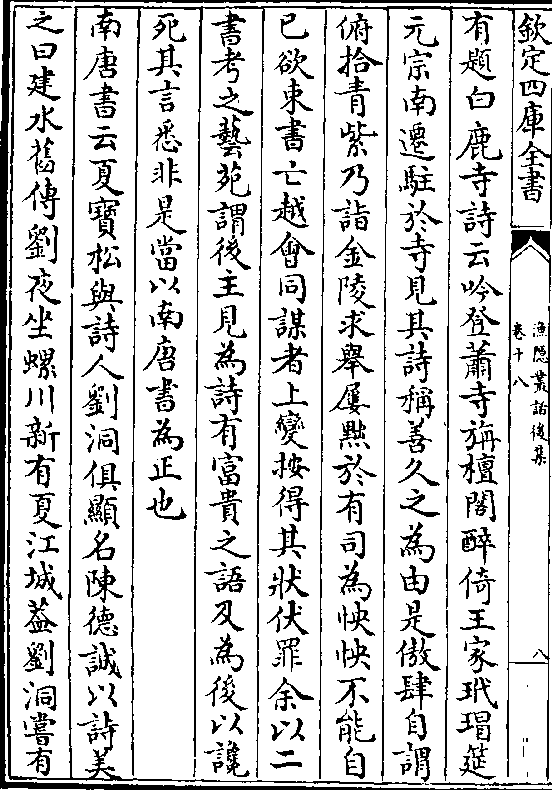 欽定四庫全書
漁隱叢話後集
卷十八
八
有題白鹿寺詩云吟登蕭寺旃檀閣醉倚王家玳瑁筵
元宗南遷駐於寺見其詩稱善久之為由是傲肆自謂
俯拾青紫乃詣金陵求舉屢黜於有司為怏怏不能自
已欲束書亡越會同謀者上變按得其狀伏罪余以二
書考之藝苑謂後主見為詩有富貴之語及為後以讒
死其言悉非是當以南唐書為正也
南唐書云夏寶松與詩人劉洞俱顯名陳德誠以詩美
之曰建水舊傳劉夜坐螺川新有夏江城蓋劉洞嘗有